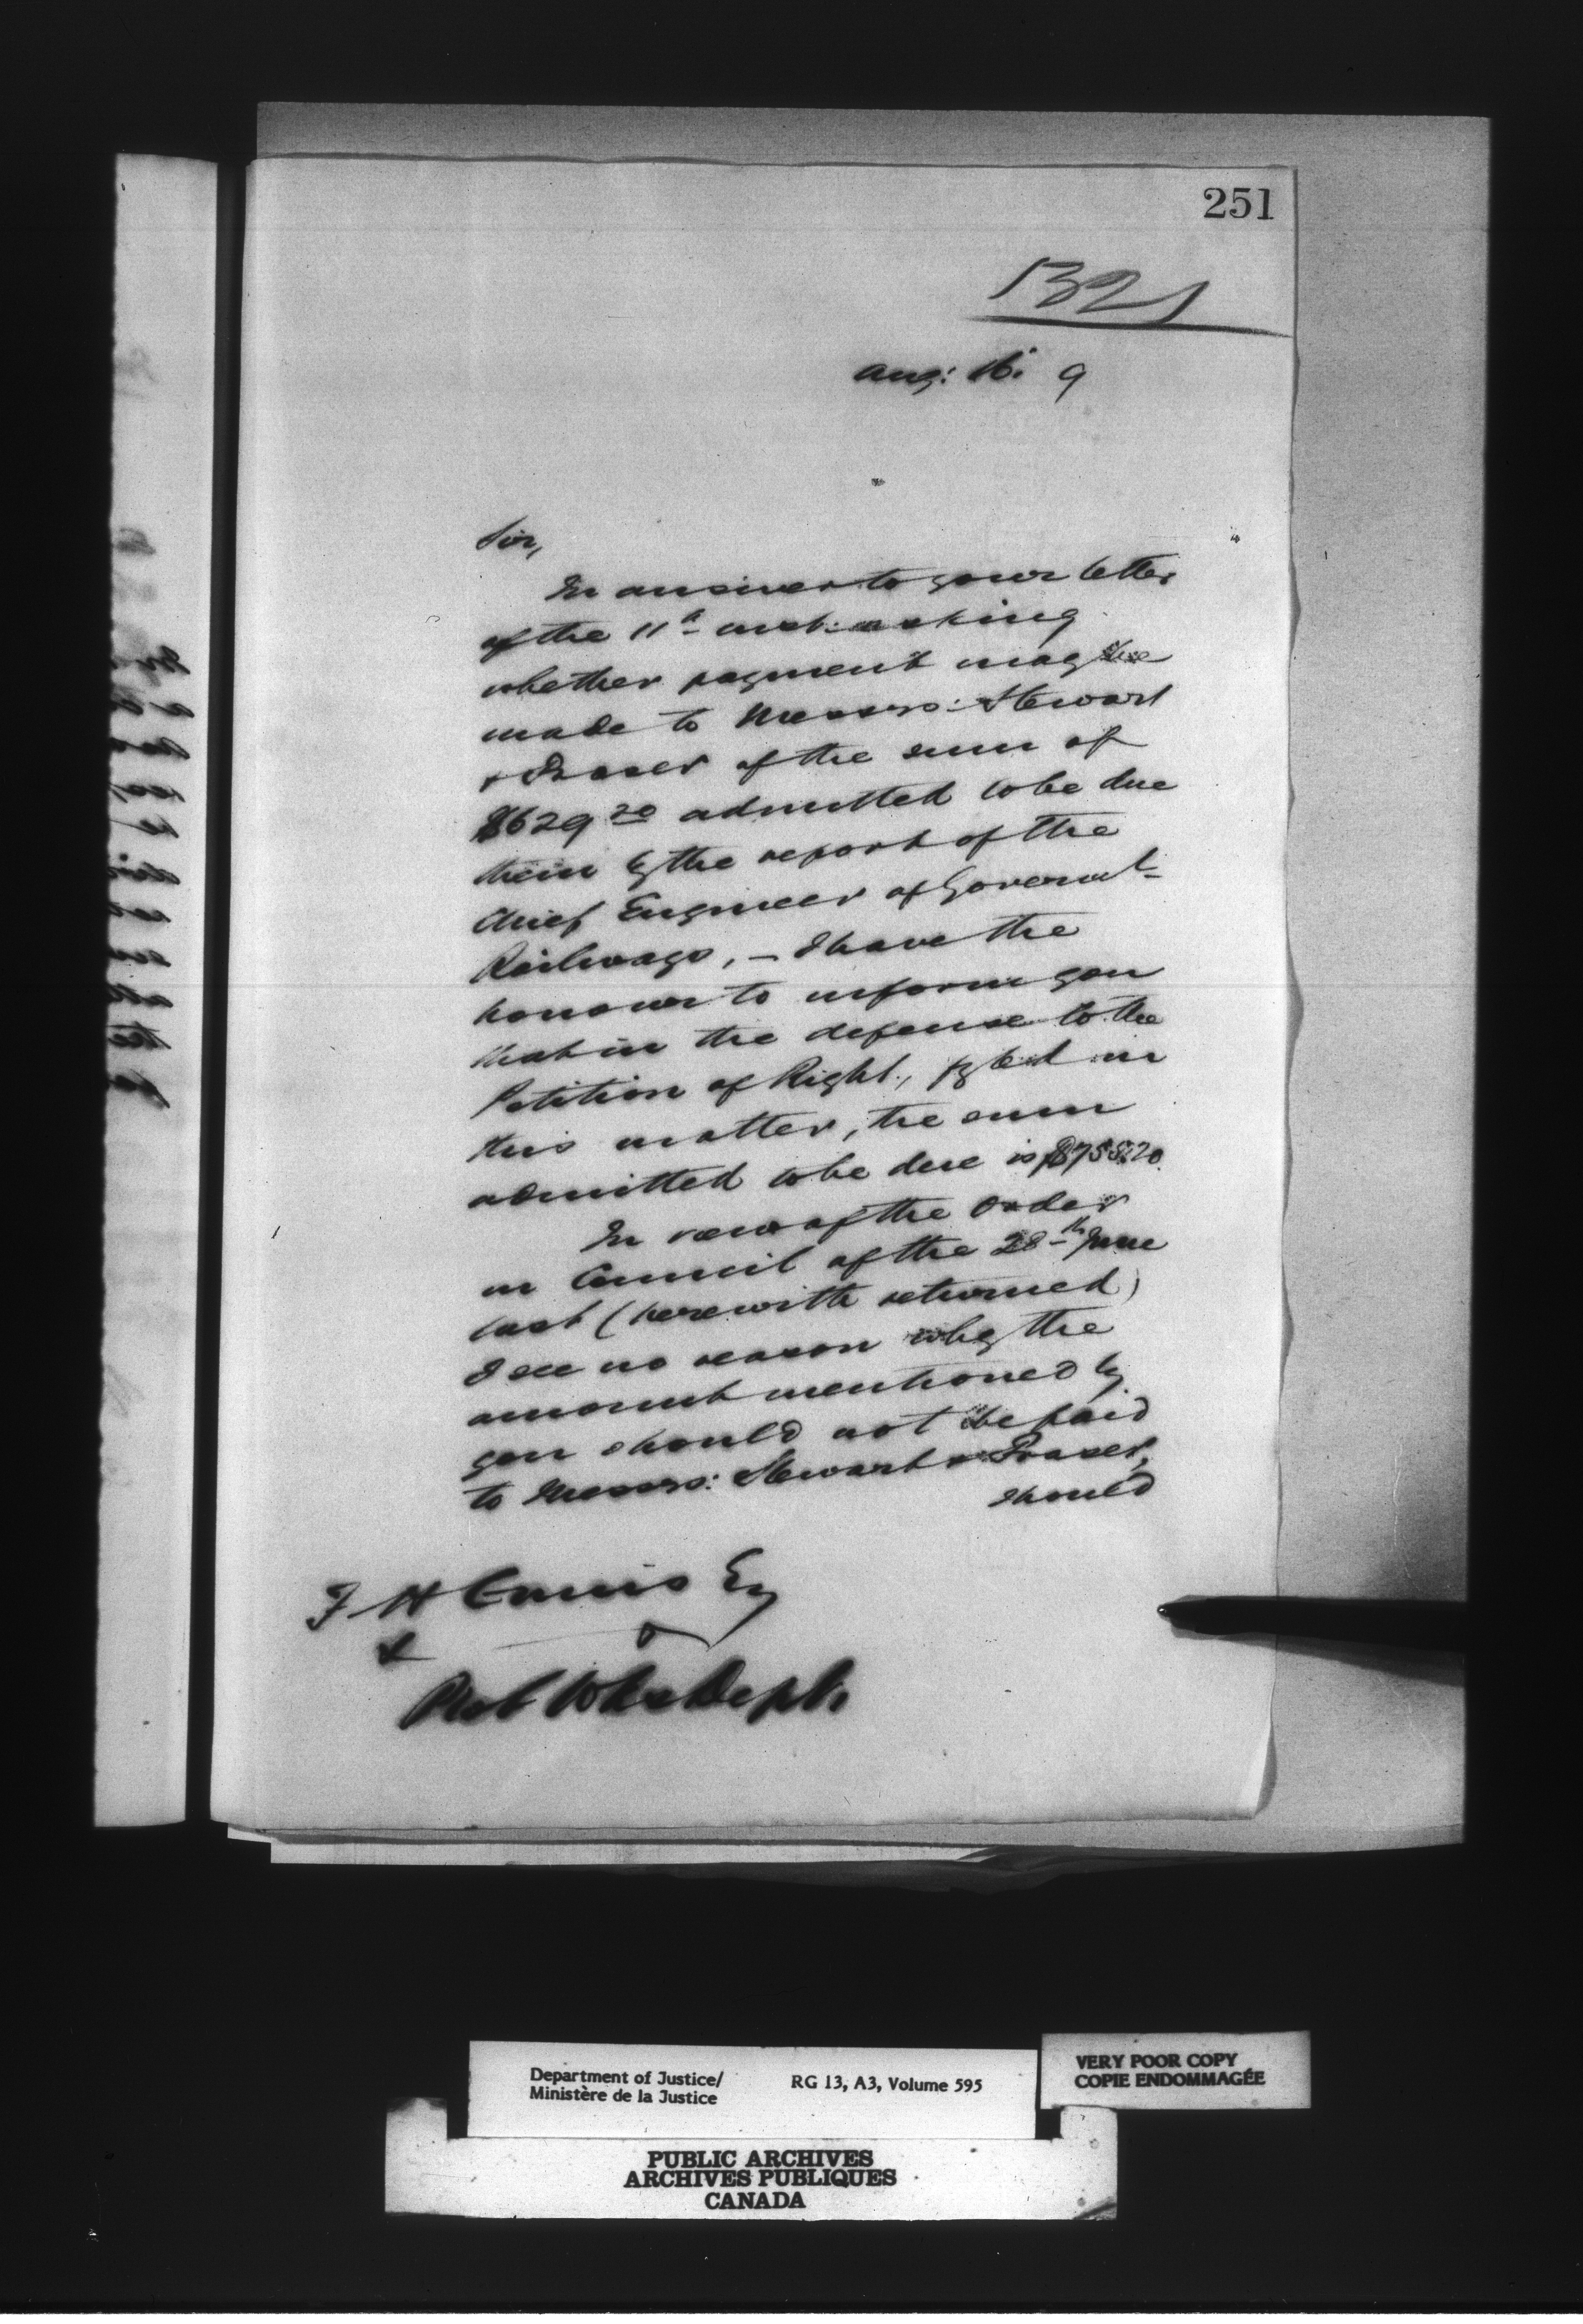 251
1321
Aug: 16. 9
Sir,
In answer to your letter
of the 11th inst: asking
whether payment may be
made to Messrs: Stewart
& Fraser of the sum of
$629 20 admitted to be due
them by the report of the
Chief Engineer of Governmt
Railways, - I have the
honour to inform you
that in the defense to the
Petition of Right, filed in
this matter, the sum
admitted to be due is
In view of the Order
in Council of the 28th June
last (herewith returned)
I see no reason why the
amount mentioned by
you should not be paid
to Messrs: Stewart & Fraser,
should
F H Ennis Esq
&
Pub Wks Dept.
Department of Justice/
Ministère de la Justice
RG 13, A3, Volume 595
VERY POOR COPY
COPIE ENDOMMAGÉE
PUBLIC ARCHIVES
ARCHIVES PUBLIQUES
CANADA